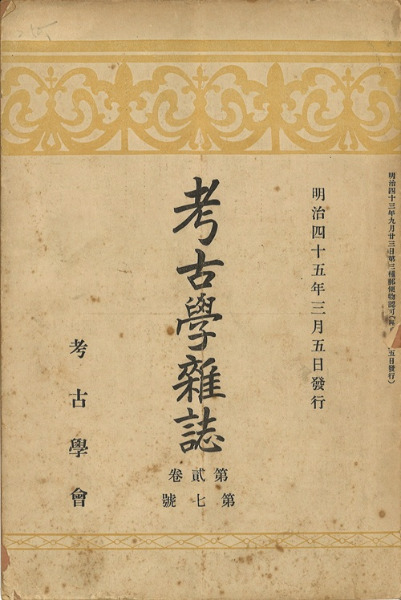 明治四十三年九月廿三日第三種郵便物認可
五日發行）
明治四十五年三月五日發行
考古學雜誌
第貳卷
第七號
考古學會